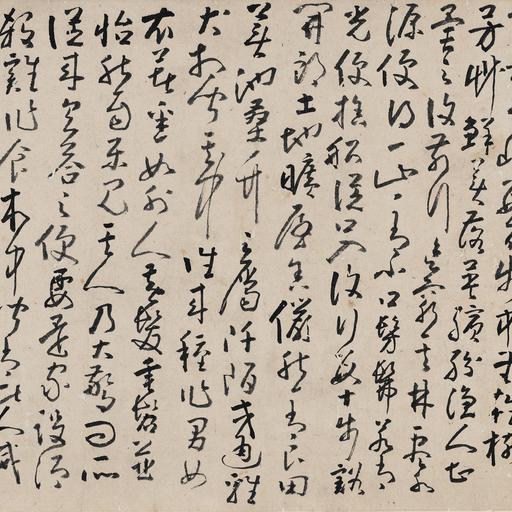 岸數百步中無雜樹
芳艸鮮美落英繽紛漁人甚
異之復前行欲窮其林林盡水
源便得一山山有小口髣髴若有
光便捨船從口入復行數十步豁
開朗土地曠屋舍儼然有良田
美池桑竹之屬阡陌交通雞
犬相聞其中往來種作男女
衣著悉如外人黃髮垂髫並
怡然自樂見其人乃大驚問所
從來具答之便要還家設酒
殺雞作食村中聞有此人咸